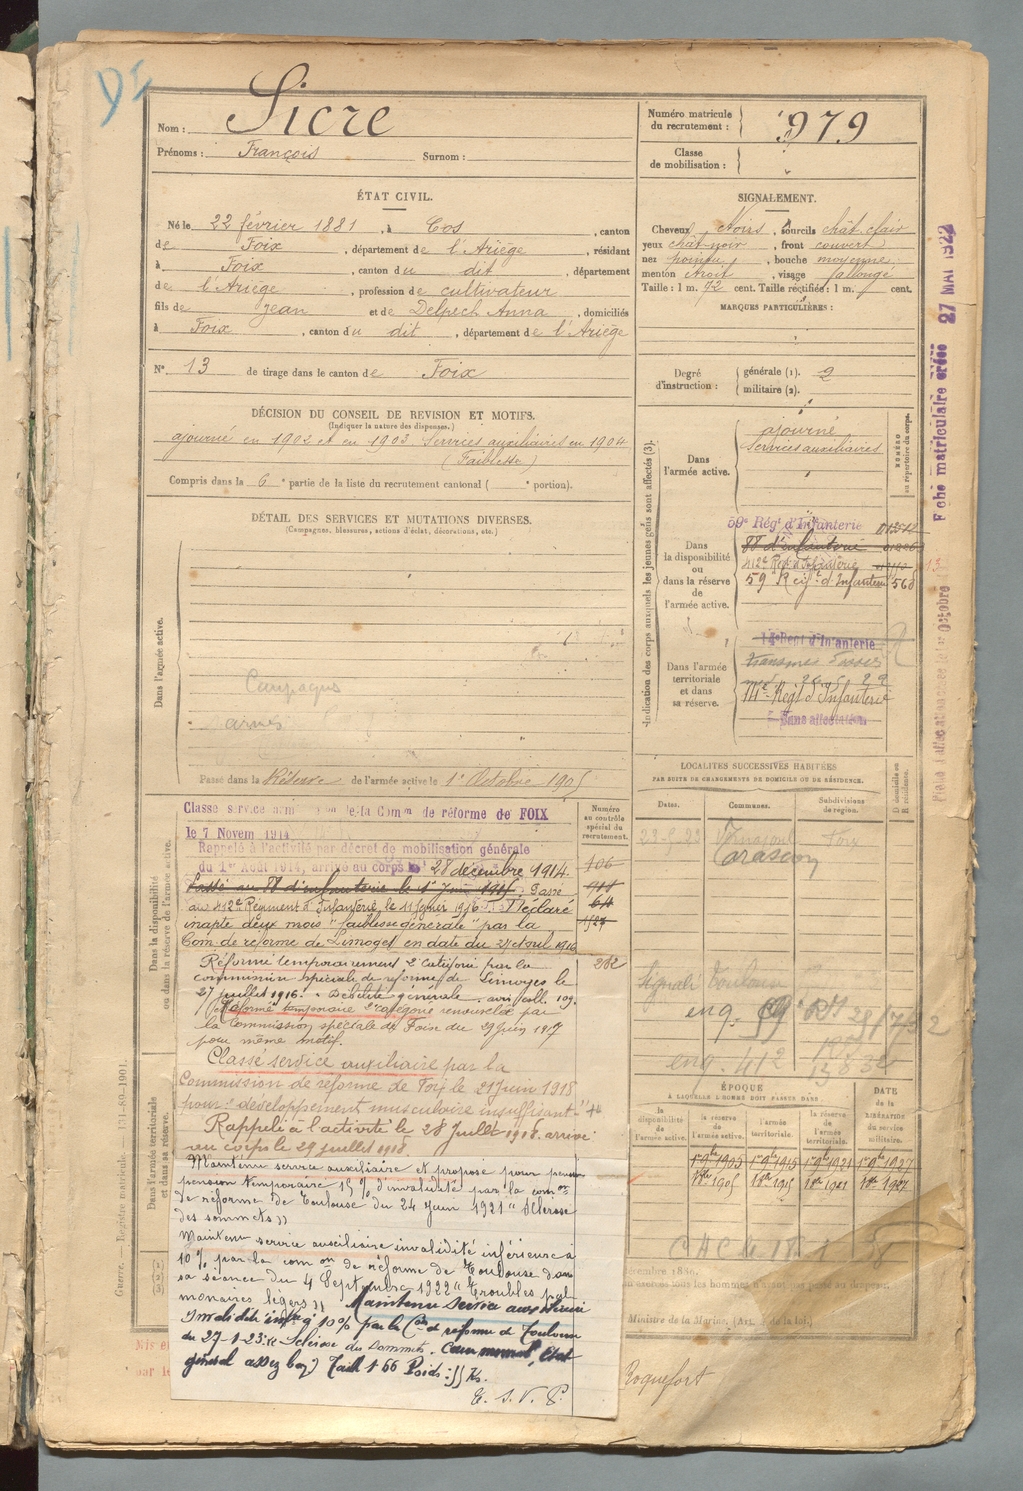 Nom : Sicre
Prénoms : François Surnom :
Numéro matricule du recrutement : 979
Classe de mobilisation :
ÉTAT CIVIL.
Né le 22 février 1881, à Cos, canton
de Foix, département de l'Ariège, résidant
à Foix, canton du dit, département
de l'Ariège, profession de cultivateur
fils de Jean et de Delpech Anna, domiciliés
à Foix, canton du dit, département de l'Ariège
N° 13 de tirage dans le canton de Foix
SIGNALEMENT.
Cheveux Noirs, sourcils chât. clair
yeux chât-noir, front couvert
nez pointu, bouche moyenne
menton droit, visage allongé
Taille : 1 m. 72 cent. Taille rectifiée : 1 m. cent.
MARQUES PARTICULIÈRES :
Degré d'instruction : générale (1). 2
militaire (2).
DÉCISION DU CONSEIL DE REVISION ET MOTIFS.
(Indiquer la nature des dispenses.)
ajourné en 1902 et en 1903 Services auxiliaires en 1904
(Faiblesse)
Compris dans la 6e partie de la liste du recrutement cantonal ( portion).
DÉTAIL DES SERVICES ET MUTATIONS DIVERSES.
(Campagnes, blessures, actions d'éclat, décorations, etc.)
Dans l'armée active.
Campagnes
Passé dans la Réserve de l'armée active le 1er Octobre 1905
Indication des corps auxquels les jeunes gens sont affectés (3).
NUMÉRO au répertoire du corps.
Dans l'armée active.
ajourné
Services auxiliaires
Dans la disponibilité ou dans la réserve de l'armée active.
59e Régt d'Infanterie
88 d'infanterie
412e Reg. d'Infanterie
59 Reg. d'Infanterie 560
Dans l'armée territoriale et dans sa réserve.
Régt d'Infanterie
Sans affectation
Fiche matriculaire créée 27 MAI 1922
LOCALITÉS SUCCESSIVES HABITÉES
PAR SUITE DE CHANGEMENTS DE DOMICILE OU DE RÉSIDENCE.
Dates. Communes. Subdivisions de région. D domicile ou R résidence.
Tarascon Foix
Signalé Toulouse
eng. 412
Dans la disponibilité ou dans la réserve de l'armée active.
Numéro au contrôle spécial du recrutement.
Classé service armé de la Comon de réforme de FOIX
le 7 Novem 1914
Rappelé à l'activité par décret de mobilisation générale
du 1er Août 1914, arrivé au corps le 28 décembre 1914.
Passé au 88 d'infanterie le 1er Juin 1915. Passé
au 412e Régiment d'Infanterie, le 11 Janvier 1916. Déclaré
inapte deux mois "faiblesse générale" par la
Com. de réforme de Limoges en date du 27 Avril 1916
Réformé temporairement 2e catégorie par la
commission spéciale de réforme de Limoges le
27 juillet 1916. Débilité générale.
Réformé temporaire 2e catégorie renouvelée par
la Commission spéciale de Foix du 29 Juin 1917
pour même motif.
Classé service auxiliaire par la
Commission de réforme de Foix le 21 Juin 1918
pour : "développement musculaire insuffisant"
Rappelé à l'activité le 28 Juillet 1918. arrivé
au corps le 29 juillet 1918.
Maintenu service auxiliaire et proposé pour
pension temporaire 15% d'invalidité par la comon
de réforme de Toulouse du 24 Juin 1921 "Sclérose
des sommets"
Maintenu service auxiliaire invalidité inférieure à
10% par la comon de réforme de Toulouse dans
sa séance du 4 Septembre 1922 "Troubles pul
monaires légers" Maintenu Service auxiliaire
Invalidité infre à 10% par la Con de réforme de Toulouse
du 27-1-23 : Sclérose des Sommets. Cœur normal, état
général assez bon Taill 1 66 Poids : 55 Ks.
T. S. V. P.
Dans l'armée territoriale et dans sa réserve.
ÉPOQUE
À LAQUELLE L'HOMME DOIT PASSER DANS
la disponibilité de l'armée active. la réserve de l'armée active. l'armée territoriale. la réserve de l'armée territoriale.
DATE de la LIBÉRATION du service militaire.
1er 8bre 1905 1er 8bre 1915 1er 8bre 1921 1er 8bre 1927
Ministre de la Marine. (Art. de la loi.)
Roquefort
Guerre. — Registre matricule. — 131-89-1901.